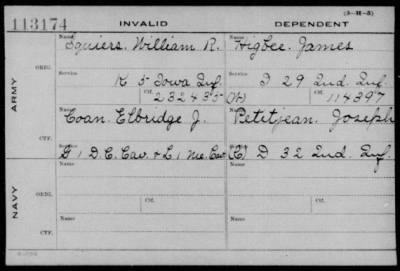 (3-H-3)
113174
INVALID
DEPENDENT
ARMY
NAVY
ORIG.
CTF.
ORIG.
CTF.
Name
Squiers. William R.
Name
Higbee. James
Service
K 5 Iowa Inf.
Service
I 29 Ind. Inf.
Ctf.
232435
(H)
Ctf.
114397
Name
Coan. Elbridge J.
Name
Petitjean. Joseph
Service
G 1 D.C. Cav. & L 1 Me. Cav.
Service
D 32 Ind. Inf.
Name
Name
Service
Ctf.
Service
Ctf.
Name
Name